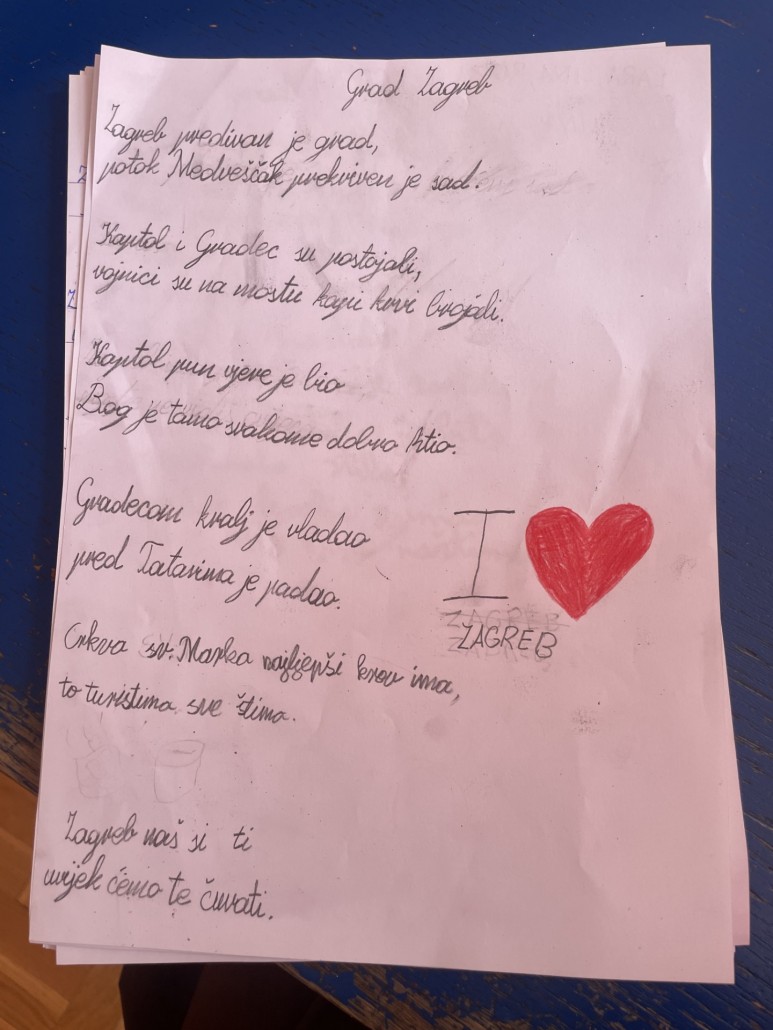 Grad Zagreb
Zagreb predivan je grad,
potok Medveščak prekriven je sad.
Kaptol i Gradec su postojali,
vojnici su na mostu kapi krvi brojali.
Kaptol pun vjere je bio
Bog je tamo svakome dobro htio.
Gradecom kralj je vladao
pred Tatarima je padao.
Crkva sv. Marka najljepši krov ima,
to turistima sve štima.
I
ZAGREB
Zagreb naš si ti
uvijek ćemo te čuvati.